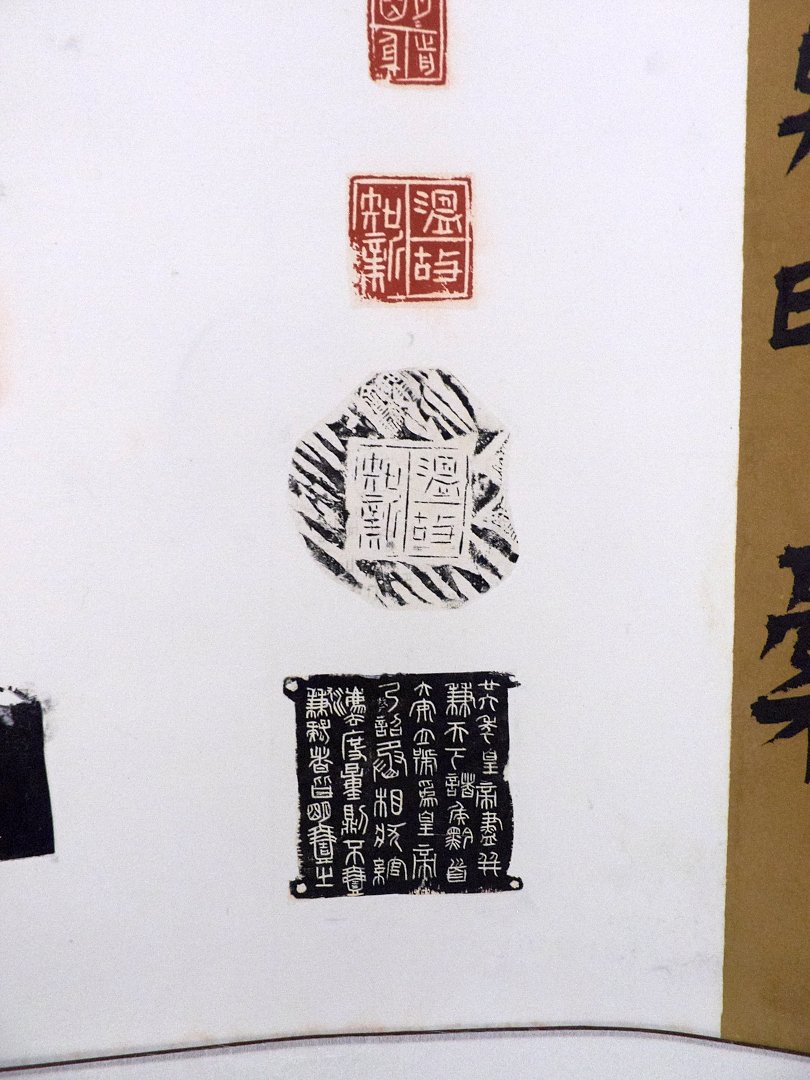 溫故
知新
溫故
知新
廿六年皇帝盡并
兼天下諸侯黔首
大安立號爲皇帝
乃詔丞相狀綰
灋度量則不壹
歉疑者皆明壹之